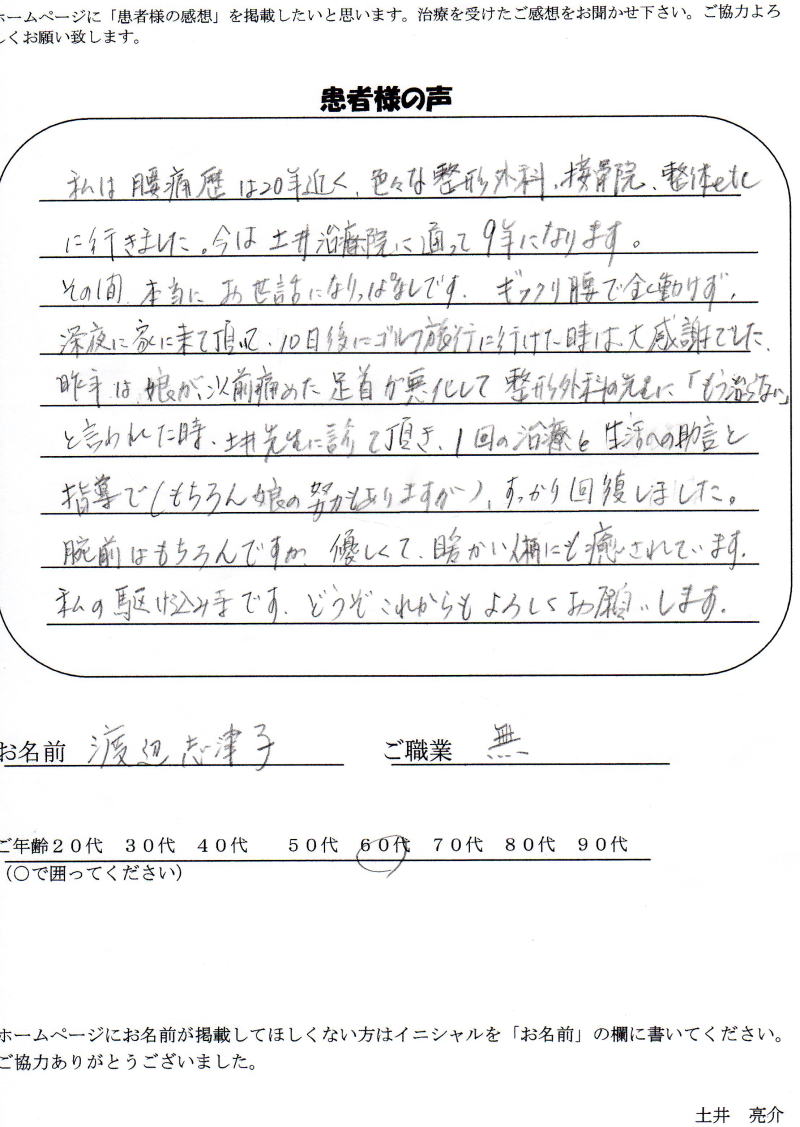 ホームページに「患者様の感想」を掲載したいと思います。治療を受けたご感想をお聞かせ下さい。ご協力よろ
しくお願い致します。
患者様の声
私は腰痛歴は20年近く、色々な整形外科、接骨院、整体etc
に行きました。今は土井治療院に通って9年になります。
その間、本当にお世話になりっぱなしです。ギックリ腰で全く動けず、
深夜に家に来て頂いて、10日後にゴルフ旅行に行けた時は大感謝でした。
昨年は、娘が以前痛めた足首が悪化して整形外科の先生に「もう治らない」
と言われた時、土井先生に診て頂き、1回の治療と生活への助言と
指導で(もちろん娘の努力もありますが)、すっかり回復しました。
腕前はもちろんですが、優しくて、暖かい人柄にも癒されています。
私の駆け込み寺です。どうぞこれからもよろしくお願いします。
お名前 渡辺志津子 ご職業 無
ご年齢20代 30代 40代 50代 60代 70代 80代 90代
(○で囲ってください)
ホームページにお名前が掲載してほしくない方はイニシャルを「お名前」の欄に書いてください。
ご協力ありがとうございました。
土井 亮介